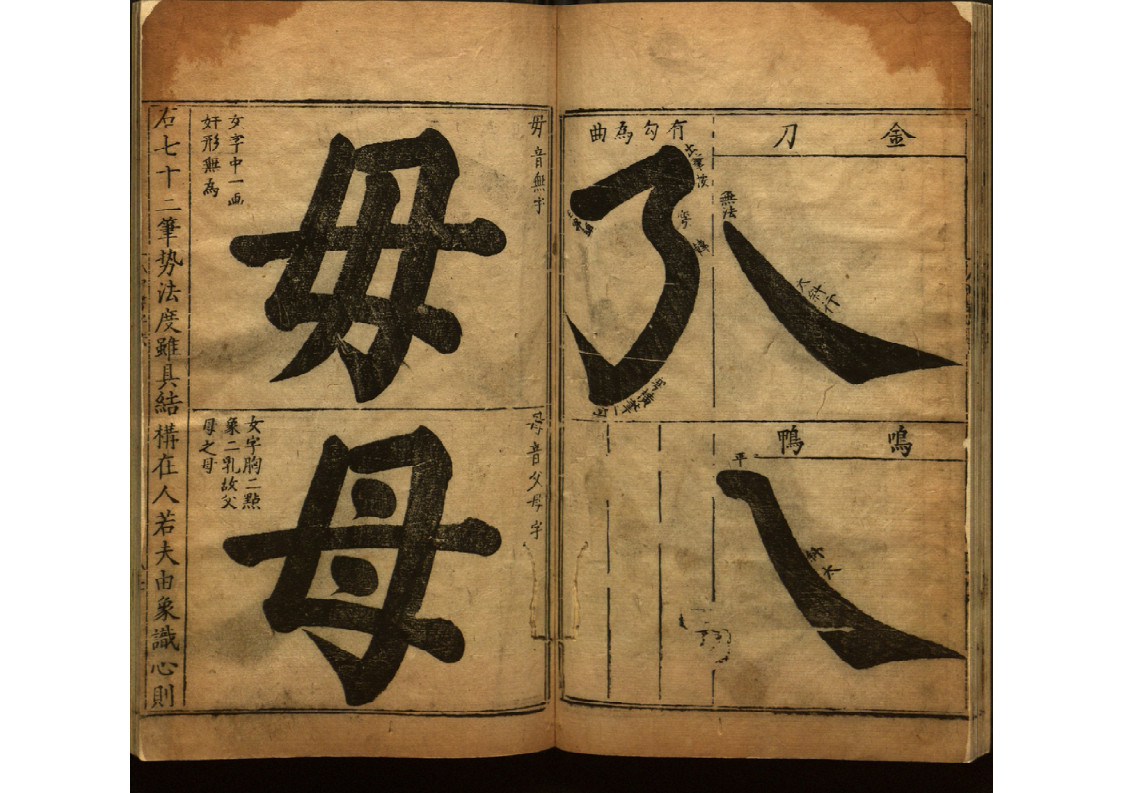 金刀
無法
大斜行
有勾為曲
鳴鴨
平
毋音無字
毋
女字中一画
奸形無為
母音父母字
母
女字胸二點
象二乳故父
母之母
右七十二筆势法度雖具結構在人若夫由象識心則